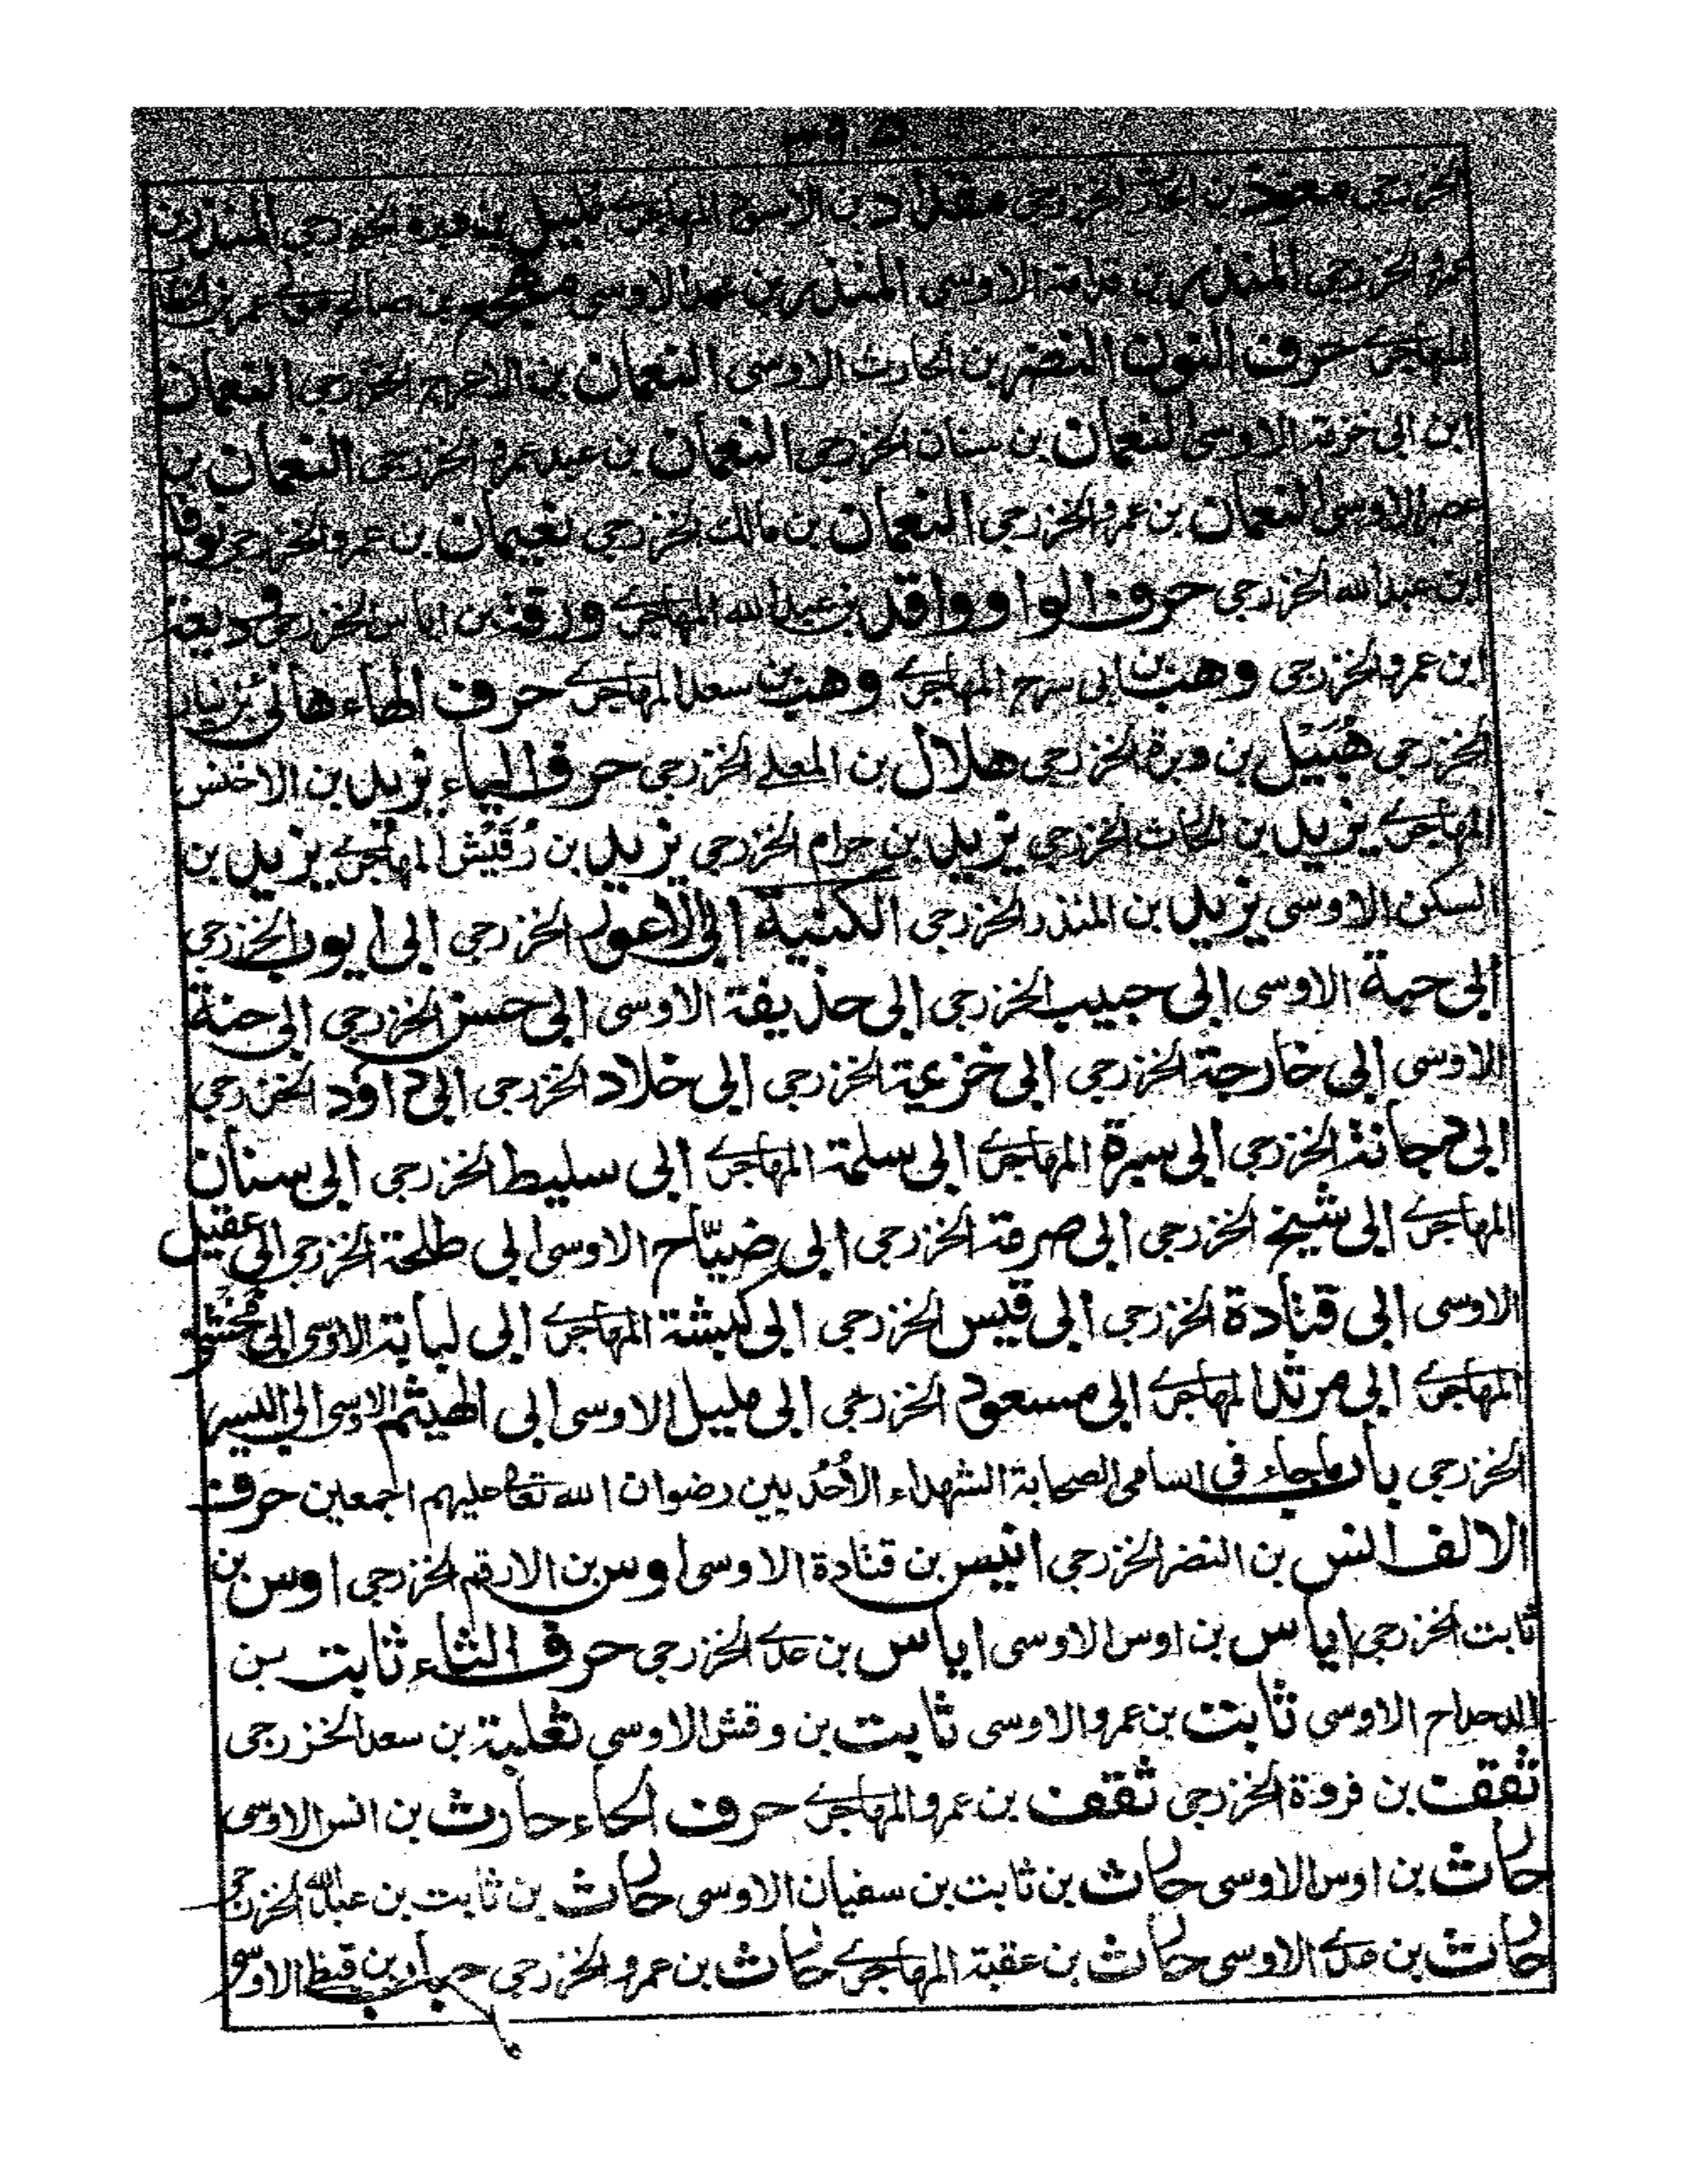 الخزرجي معوذ بن الحارث الخزرجي مقداد بن الاسود المهاجرے مليل بن وبرة الخزرجي المنذر بن
عمرو الخزرجي المنذر بن قدامة الاوسي المنذر بن محمد الاوسي مهجع بن صالح مولى عمر بن الخطاب
المهاجرے حرف النون النضر بن الحارث الاوسي النعمان بن الاعرج الخزرجي النعمان
ابن ابي خزمة الاوسي النعمان بن سنان الخزرجي النعمان بن عبد عمرو الخزرجي النعمان بن
عصر الاوسي النعمان بن عمرو الخزرجي النعمان بن مالك الخزرجي نعيمان بن عمرو الخزرجي نوفل
ابن عبد الله الخزرجي حرف الواو واقد بن عبد الله المهاجرے ورقة بن اياس الخزرجي وديعة
ابن عمرو الخزرجي وهب بن ابي سرح المهاجرے وهب بن سعد المهاجرے حرف الهاء هانئ بن نيار
الخزرجي هُبَيْل بن وبرة الخزرجي هلال بن المعلے الخزرجي حرف الياء يزيد بن الاخنس
المهاجرے يزيد بن الحارث الخزرجي يزيد بن حرام الخزرجي يزيد بن رُقَيْش المهاجرے يزيد بن
السكن الاوسي يزيد بن المنذر الخزرجي الكنية ابي الاعور الخزرجي ابي ايوب الخزرجي
ابي حبة الاوسي ابي حبيب الخزرجي ابي حذيفة الاوسي ابي حسن الخزرجي ابي حنة
الاوسي ابي خارجة الخزرجي ابي خزيمة الخزرجي ابي خلاد الخزرجي ابي داود الخزرجي
ابي دجانة الخزرجي ابي سبرة المهاجرے ابي سلمة المهاجرے ابي سليط الخزرجي ابي سنان
المهاجرے ابي شيخ الخزرجي ابي صرمة الخزرجي ابي ضيّاح الاوسي ابي طلحة الخزرجي ابي عقيل
الاوسي ابي قتادة الخزرجي ابي قيس الخزرجي ابي كبشة المهاجرے ابي لبابة الاوسي ابي مخشي
المهاجرے ابي مرثد المهاجرے ابي مسعود الخزرجي ابي مليل الاوسي ابي الهيثم الاوسي ابي اليسر
الخزرجي باب ما جاء في اسامي الصحابة الشهداء الأُحُديين رضوان الله تعا عليهم اجمعين حرف
الالف انس بن النضر الخزرجي انيس بن قتادة الاوسي اوس بن الارقم الخزرجي اوس بن
ثابت الخزرجي اياس بن اوس الاوسي اياس بن عدے الخزرجي حرف الثاء ثابت بن
الدحداح الاوسي ثابت بن عمرو الاوسي ثابت بن وقش الاوسي ثعلبة بن سعد الخزرجي
ثقف بن فروة الخزرجي ثقف بن عمرو المهاجرے حرف الحاء حارث بن انس الاوسي
حارث بن اوس الاوسي حارث بن ثابت بن سفيان الاوسي حارث بن ثابت بن عبد الله الخزرجي
حارث بن عدے الاوسي حارث بن عقبة المهاجرے حارث بن عمرو الخزرجي حباب بن قيظي الاوسي